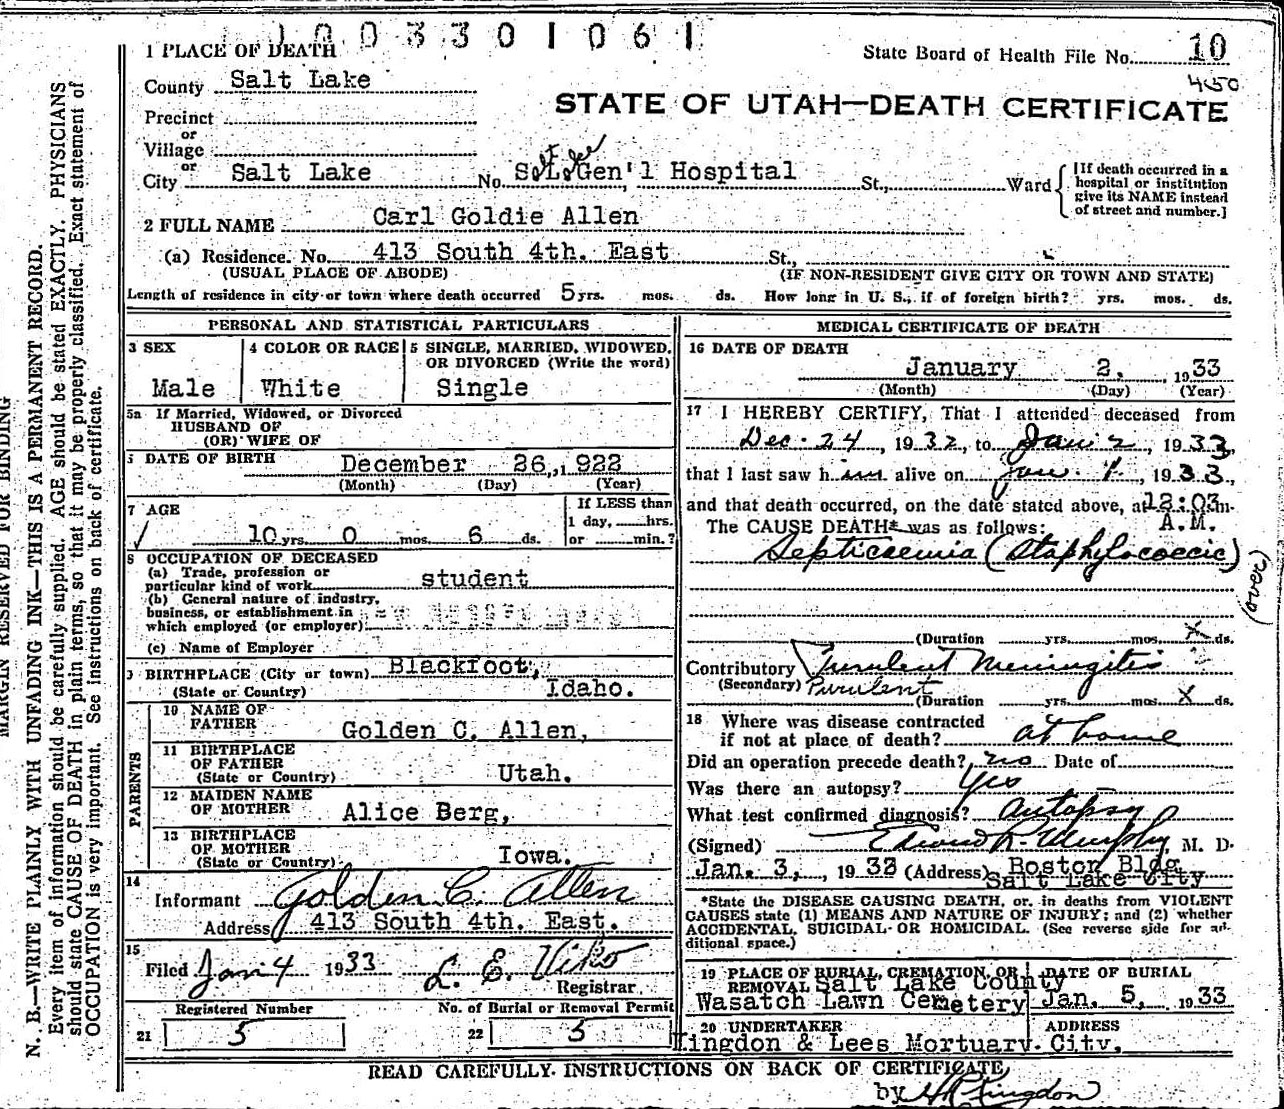 0 0 3 3 0 1 0 6 1
1 PLACE OF DEATH
State Board of Health File No. 10
450
County Salt Lake
STATE OF UTAH—DEATH CERTIFICATE
Precinct
or
Village
or
City Salt Lake No. S.L. Gen'l Hospital St., Ward
[If death occurred in a hospital or institution give its NAME instead of street and number.]
2 FULL NAME Carl Goldie Allen
(a) Residence. No. 413 South 4th. East St.,
(USUAL PLACE OF ABODE) (IF NON-RESIDENT GIVE CITY OR TOWN AND STATE)
Length of residence in city or town where death occurred 5 yrs. mos. ds. How long in U. S., if of foreign birth? yrs. mos. ds.
PERSONAL AND STATISTICAL PARTICULARS
3 SEX
Male
4 COLOR OR RACE
White
5 SINGLE, MARRIED, WIDOWED,
OR DIVORCED (Write the word)
Single
5a If Married, Widowed, or Divorced
HUSBAND OF
(OR) WIFE OF
DATE OF BIRTH December 26, 1922
(Month) (Day) (Year)
7 AGE
10 yrs. 0 mos. 6 ds.
If LESS than
1 day, hrs.
or min.?
8 OCCUPATION OF DECEASED
(a) Trade, profession or
particular kind of work student
(b) General nature of industry,
business, or establishment in
which employed (or employer)
(c) Name of Employer
9 BIRTHPLACE (City or town) Blackfoot,
(State or Country) Idaho.
PARENTS
10 NAME OF
FATHER Golden C. Allen,
11 BIRTHPLACE
OF FATHER
(State or Country) Utah.
12 MAIDEN NAME
OF MOTHER Alice Berg,
13 BIRTHPLACE
OF MOTHER
(State or Country) Iowa.
14
Informant Golden C. Allen
Address 413 South 4th. East.
15
Filed Jan 4 1933 L. E. Viko
Registrar.
Registered Number
21 5
No. of Burial or Removal Permit
22 5
MEDICAL CERTIFICATE OF DEATH
16 DATE OF DEATH
January 2, 1933
(Month) (Day) (Year)
17 I HEREBY CERTIFY, That I attended deceased from
Dec. 24, 1932, to Jan 2, 1933,
that I last saw him alive on Jan 1, 1933,
and that death occurred, on the date stated above, at 12:03 m.
A.M.
The CAUSE DEATH* was as follows:
Septicaemia (Staphylococcic)
(over)
(Duration yrs. mos. X ds.
Contributory Purulent Meningitis
(Secondary) Purulent
(Duration yrs. mos. X ds.
18 Where was disease contracted
if not at place of death? at home
Did an operation precede death? no Date of
Was there an autopsy? Yes
What test confirmed diagnosis? autopsy
(Signed) Edwin R. Murphy, M. D.
Jan. 3, 1933 (Address) Boston Bldg
Salt Lake City
*State the DISEASE CAUSING DEATH, or, in deaths from VIOLENT
CAUSES state (1) MEANS AND NATURE OF INJURY; and (2) whether
ACCIDENTAL, SUICIDAL OR HOMICIDAL. (See reverse side for ad-
ditional space.)
19 PLACE OF BURIAL, CREMATION, OR
REMOVAL Salt Lake County
Wasatch Lawn Cemetery
DATE OF BURIAL
Jan. 5, 1933
20 UNDERTAKER ADDRESS
Kingdon & Lees Mortuary. City.
READ CAREFULLY INSTRUCTIONS ON BACK OF CERTIFICATE
by Kingdon
MARGIN RESERVED FOR BINDING
N. B.—WRITE PLAINLY WITH UNFADING INK—THIS IS A PERMANENT RECORD.
Every item of information should be carefully supplied. AGE should be stated EXACTLY. PHYSICIANS
should state CAUSE OF DEATH in plain terms, so that it may be properly classified. Exact statement of
OCCUPATION is very important. See instructions on back of certificate.